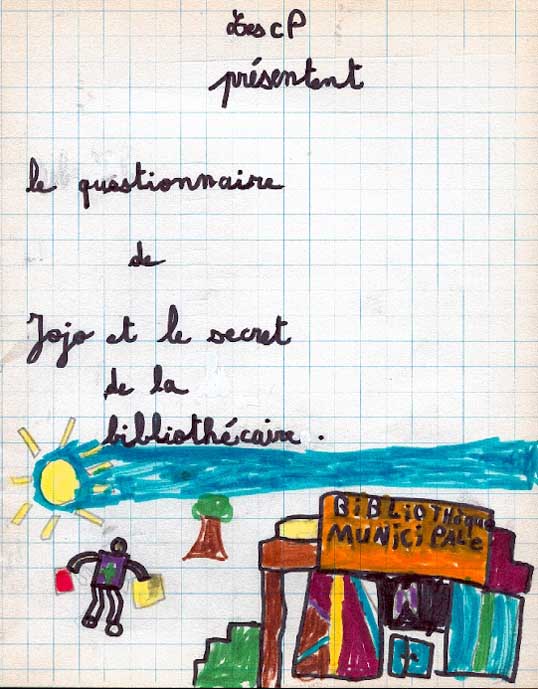 Les CP
présentent
le questionnaire
de
Jojo et le secret
de la
bibliothécaire.
BiBLiOTHèque
MUNiCiPALe